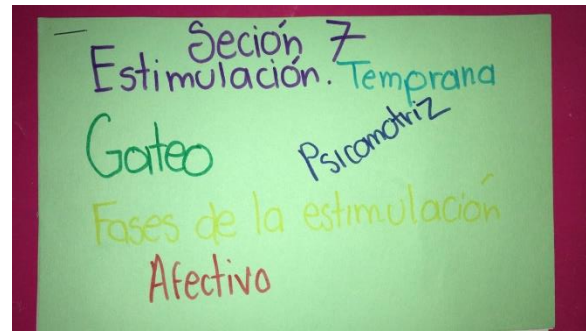 Seción 7
Estimulación. Temprana
Gateo
Psicomotriz
Fases de la estimulación
Afectivo